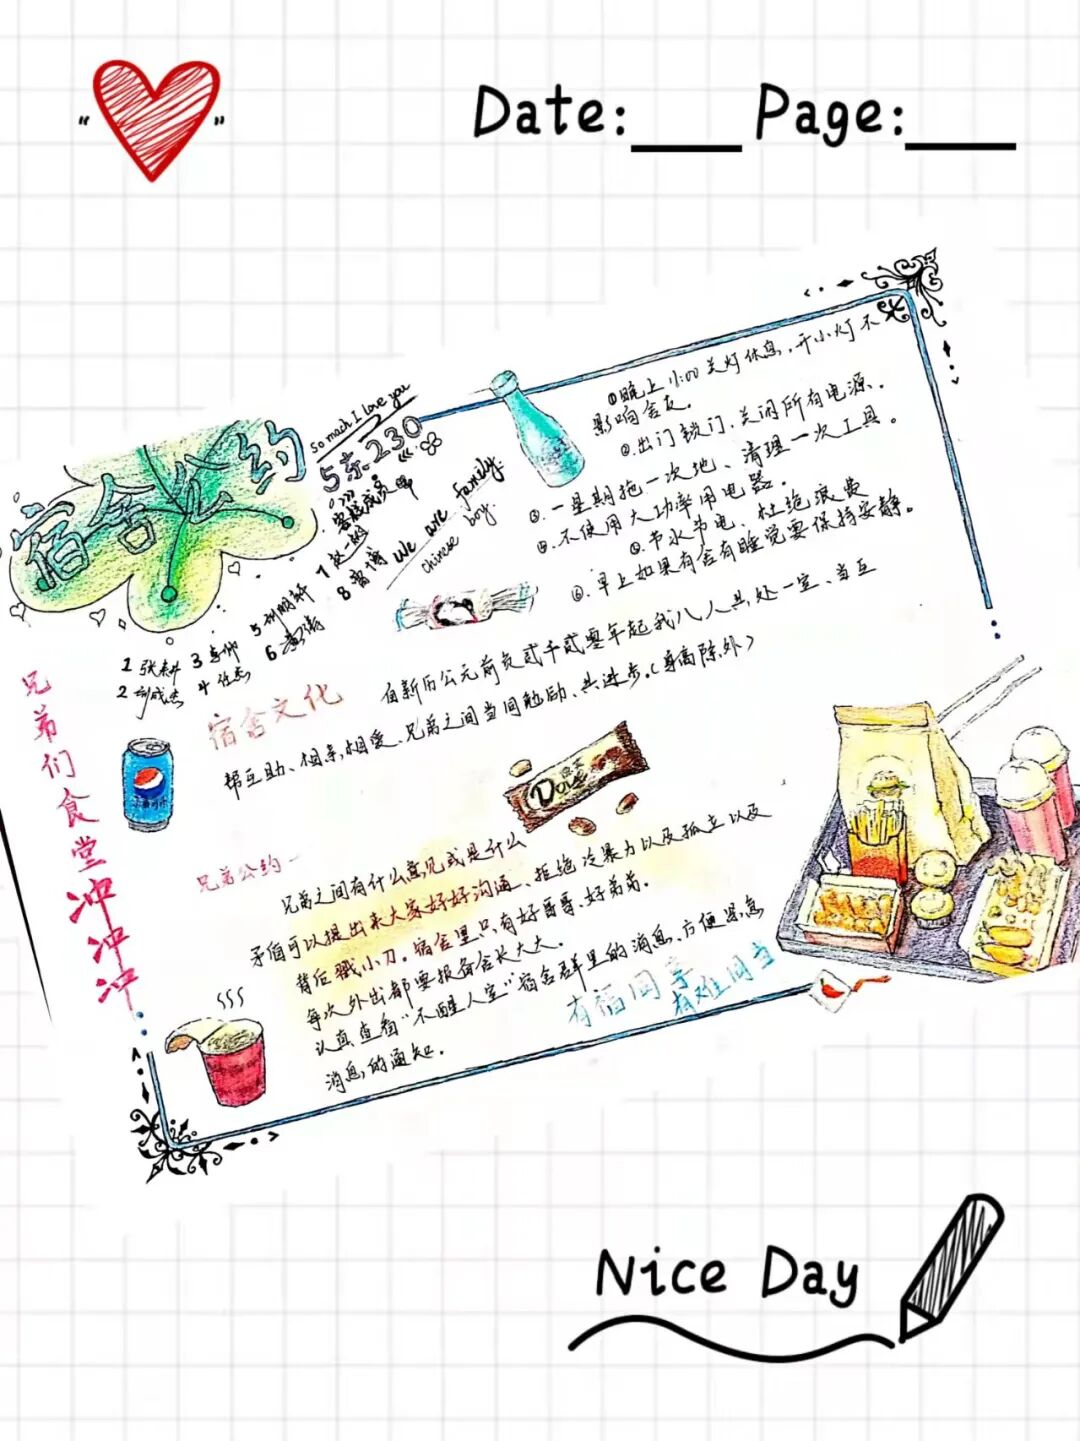 Date: Page:
宿舍公约
So much I love you
5栋-230
We are family.
Chinese boy.
1 张
2 刘成
3
4 任杰
5 刘明轩
6 黄
7 赵一
8 雷
①晚上 11:00 关灯休息，开小灯不
影响舍友。
②.出门锁门、关闭所有电源、
③.一星期拖一次地、清理一次工具。
⑤.不使用大功率用电器。
④.节水节电、杜绝浪费
⑥.早上如果有舍友睡觉要保持安静。
兄弟们食堂冲冲冲
宿舍文化
自新历公元前负贰千贰零年起我八人共处一室、当互
帮互助、相亲相爱、兄弟之间当同勉励、共进步。(身高除外)
Dove
兄弟公约一
兄弟之间有什么意见或是什么
矛盾可以提出来大家好好沟通、拒绝冷暴力以及孤立以及
背后戳小刀。宿舍里只有好哥哥、好弟弟。
每次外出都要报备舍长大大。
认真查看“不醒人室”宿舍群里的消息、方便紧急
消息的通知。
有福同享
有难同当
Nice Day